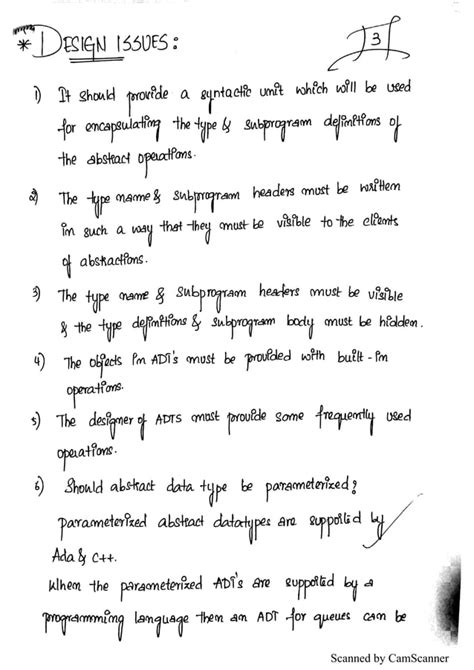 * DESIGN ISSUES:
3
1) It should provide a syntactic unit which will be used
for encapsulating the type & subprogram definitions of
the abstract operations.
2) The type name & subprogram headers must be written
in such a way that they must be visible to the clients
of abstractions.
3) The type name & subprogram headers must be visible
& the type definitions & subprogram body must be hidden.
4) The objects in ADT's must be provided with built-in
operations.
5) The designer of ADTS must provide some frequently used
operations.
6) Should abstract data type be parameterized?
parameterized abstract datatypes are supported by
Ada & C++.
When the parameterized ADT's are supported by a
programmming language then an ADT for queues can be
Scanned by CamScanner